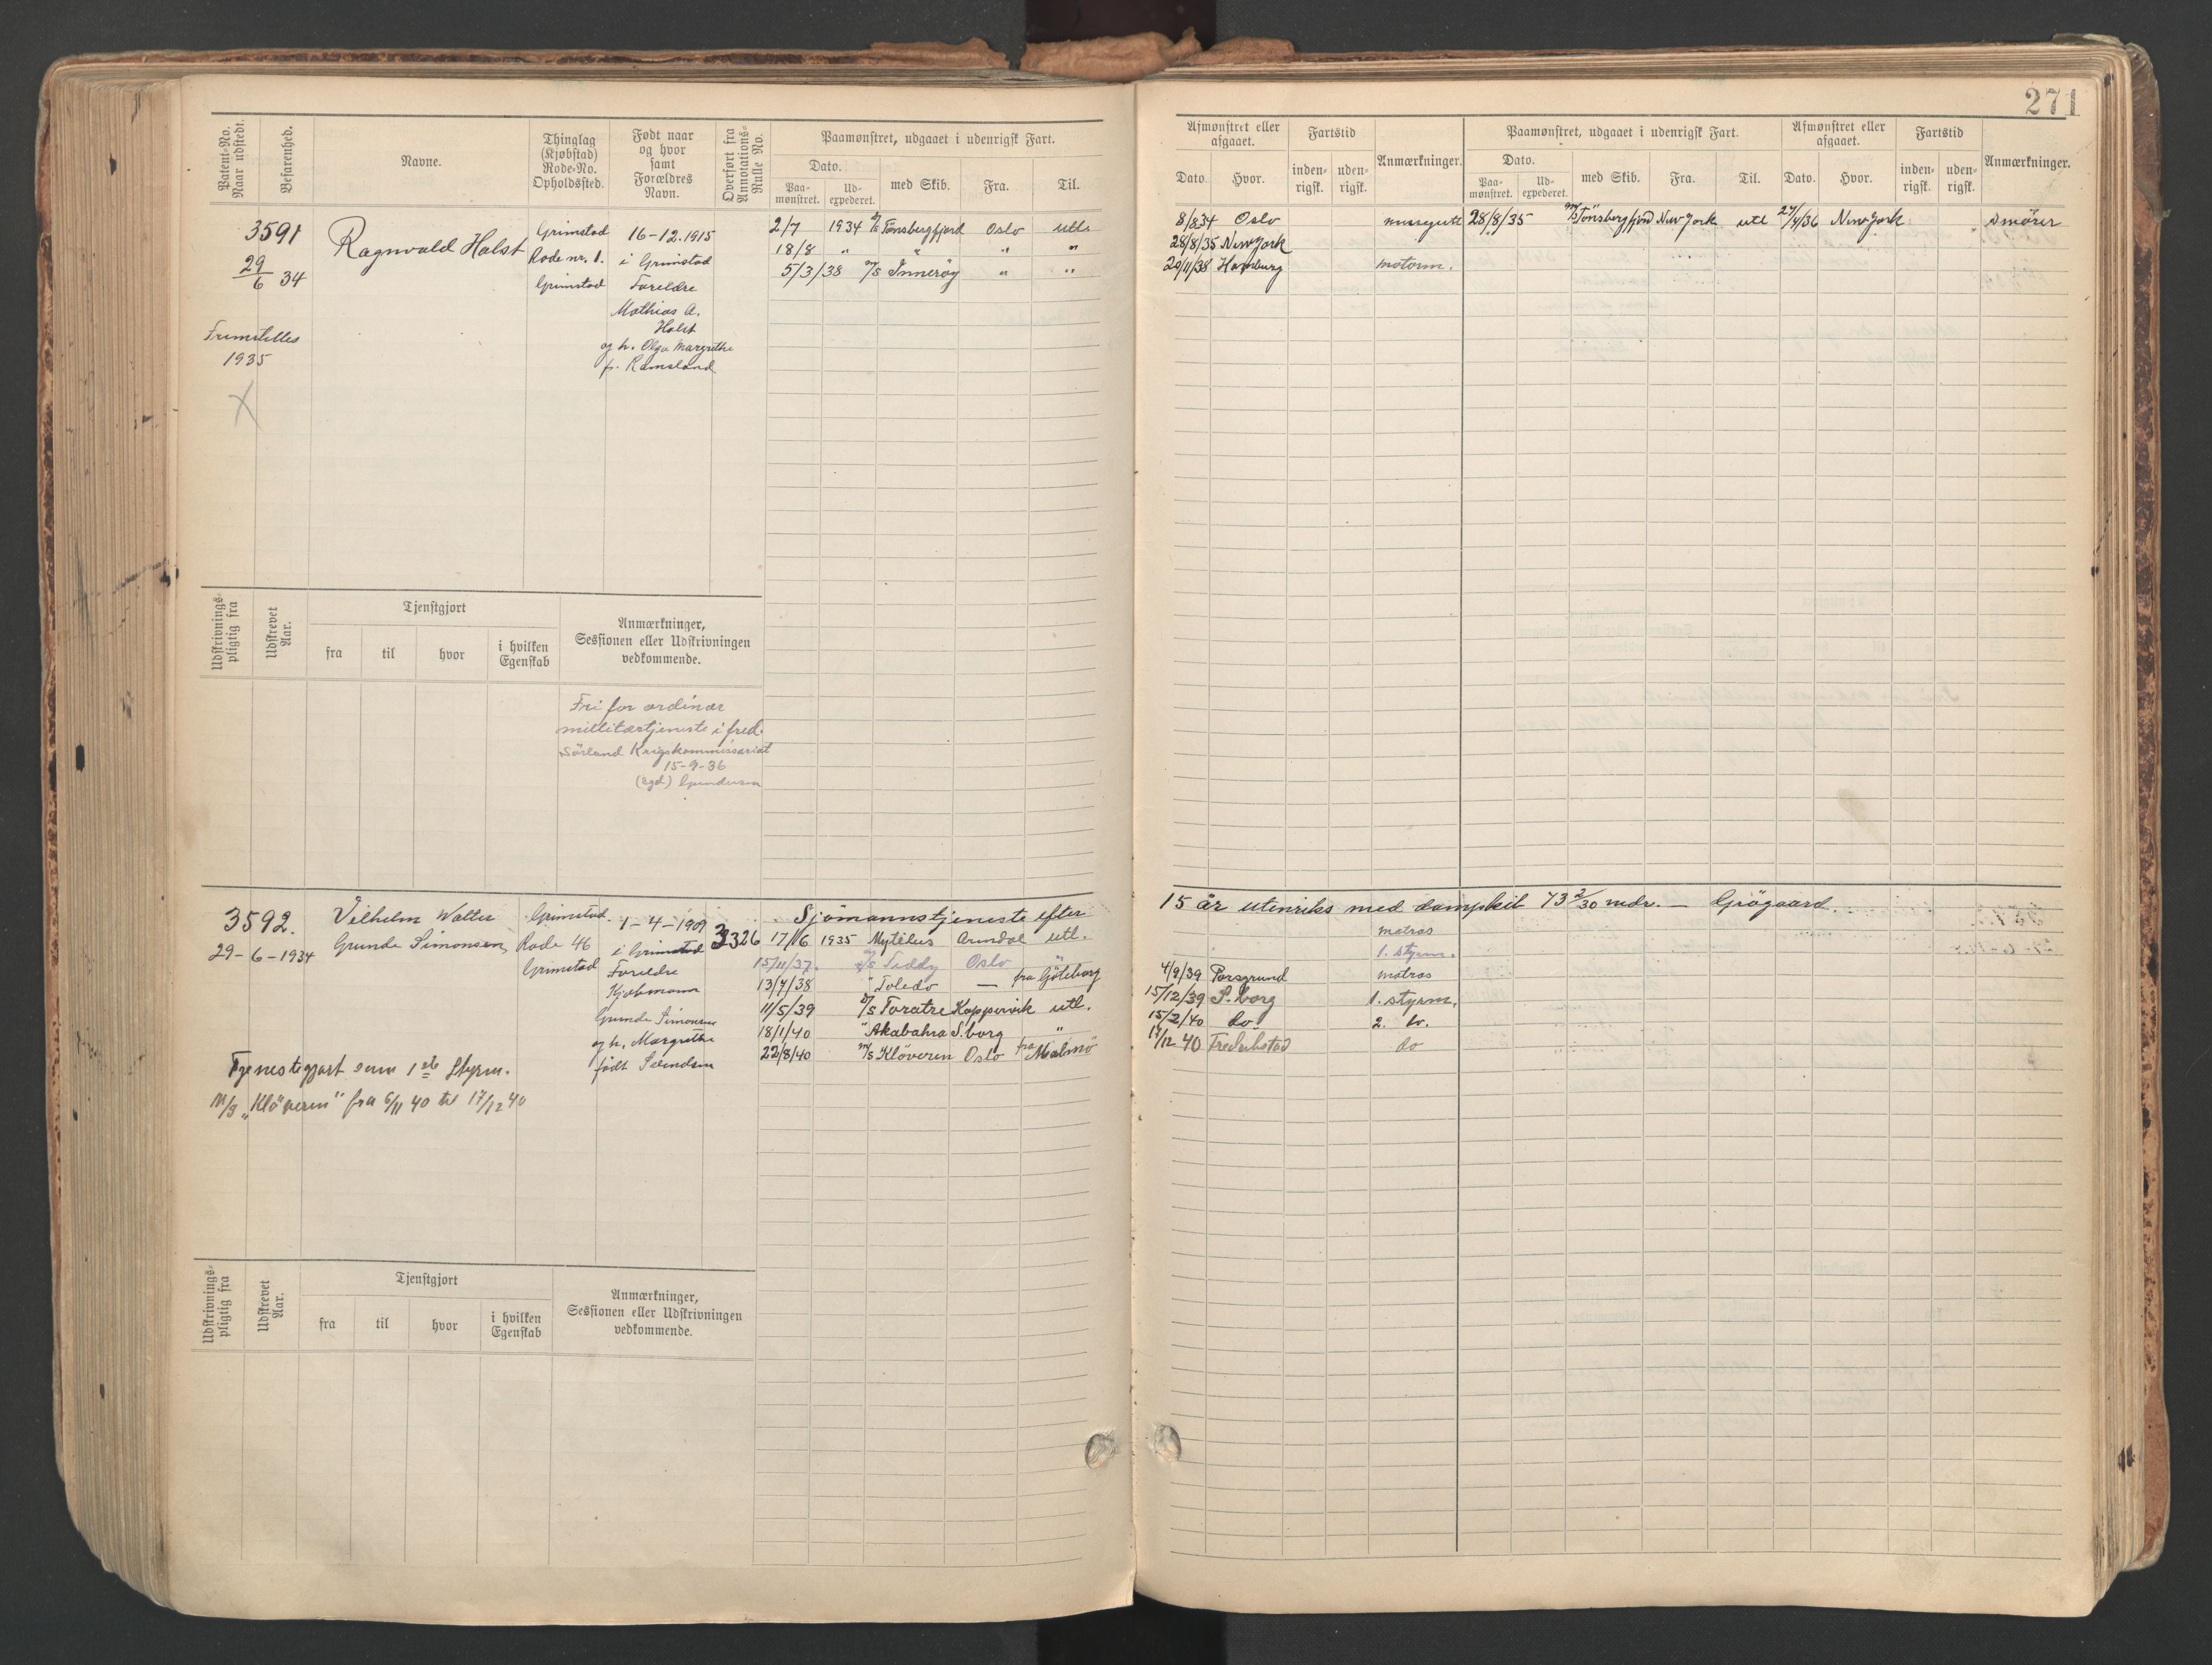 271
Patent-No. Naar udstedt.
Befarenhed.
Navne.
Thinglag (Kjøbstad) Rode-No. Opholdssted.
Født naar og hvor samt Forældres Navn.
Overført fra Annotations-Rulle No.
Paamønstret, udgaaet i udenrigsk Fart.
Dato.
Paa-mønstret.
Ud-expederet.
med Skib.
Fra.
Til.
Afmønstret eller afgaaet.
Dato.
Hvor.
Fartstid
inden-rigsk.
uden-rigsk.
Anmærkninger.
Paamønstret, udgaaet i udenrigsk Fart.
Dato.
Paa-mønstret.
Ud-expederet.
med Skib.
Fra.
Til.
Afmønstret eller afgaaet.
Dato.
Hvor.
Fartstid
inden-rigsk.
uden-rigsk.
Anmærkninger.
3591
29/6 34
Fremstilles
1935
Ragnvald Halst
Grimstad
Rode nr. 1.
Grimstad
16-12.1915
i Grimstad
Foreldre
Mathias A.
Halst
og h. Olga Margrethe
f. Ramsland
2/7 1934 Tønsbergfjord Oslo utl.
18/8 " " " "
5/3/38 m/s Innerøy " "
8/8 34 Oslo
28/8/35 New York
20/11/38 Hamburg motorm.
28/8/35 m/s Tönsbergfjord New York utl 27/4/36 New York smører
Udskrivnings-pligtig fra
Udskrevet Aar.
Tjenstgjort
fra
til
hvor
i hvilken Egenskab
Anmærkninger, Sessionen eller Udskrivningen vedkommende.
Fri for ordinær
militærtjeneste i fred.
Sörland Krigskommissariat
15-9-36
(sgd) Gundersen
3592.
29-6-1934
Vilhelm Walter
Grunde Simonsen
Grimstad.
Rode 46
Grimstad
1-4-1909
i Grimstad
Foreldre
Kjøbmann
Grunde Simonsen
og h. Margrethe
født Svendsen
3326
Sjömannstjeneste efter
15 år utenriks med dampskib 73 2/30 mdr. — Grögaard.
17/6 1935 Mytilus Arendal utl. matros
15/11/37. Teddy Oslo " 1. styrm.
13/7/38 " Toledo — fra Göteborg 4/9/39 Porsgrund matros
11/5/39 Toratre Koppervik utl. 15/12/39 S.borg 1. styrm.
18/1/40 " Akabahra S.borg " 15/2/40 do 2. do.
22/8/40 m/s Klöveren Oslo fra Malmö 17/12 40 Fredrikstad do
Tjenestegjort som 1ste Styrm.
M/S "Klöveren" fra 6/11 40 til 17/12 40
Udskrivnings-pligtig fra
Udskrevet Aar.
Tjenstgjort
fra
til
hvor
i hvilken Egenskab
Anmærkninger, Sessionen eller Udskrivningen vedkommende.